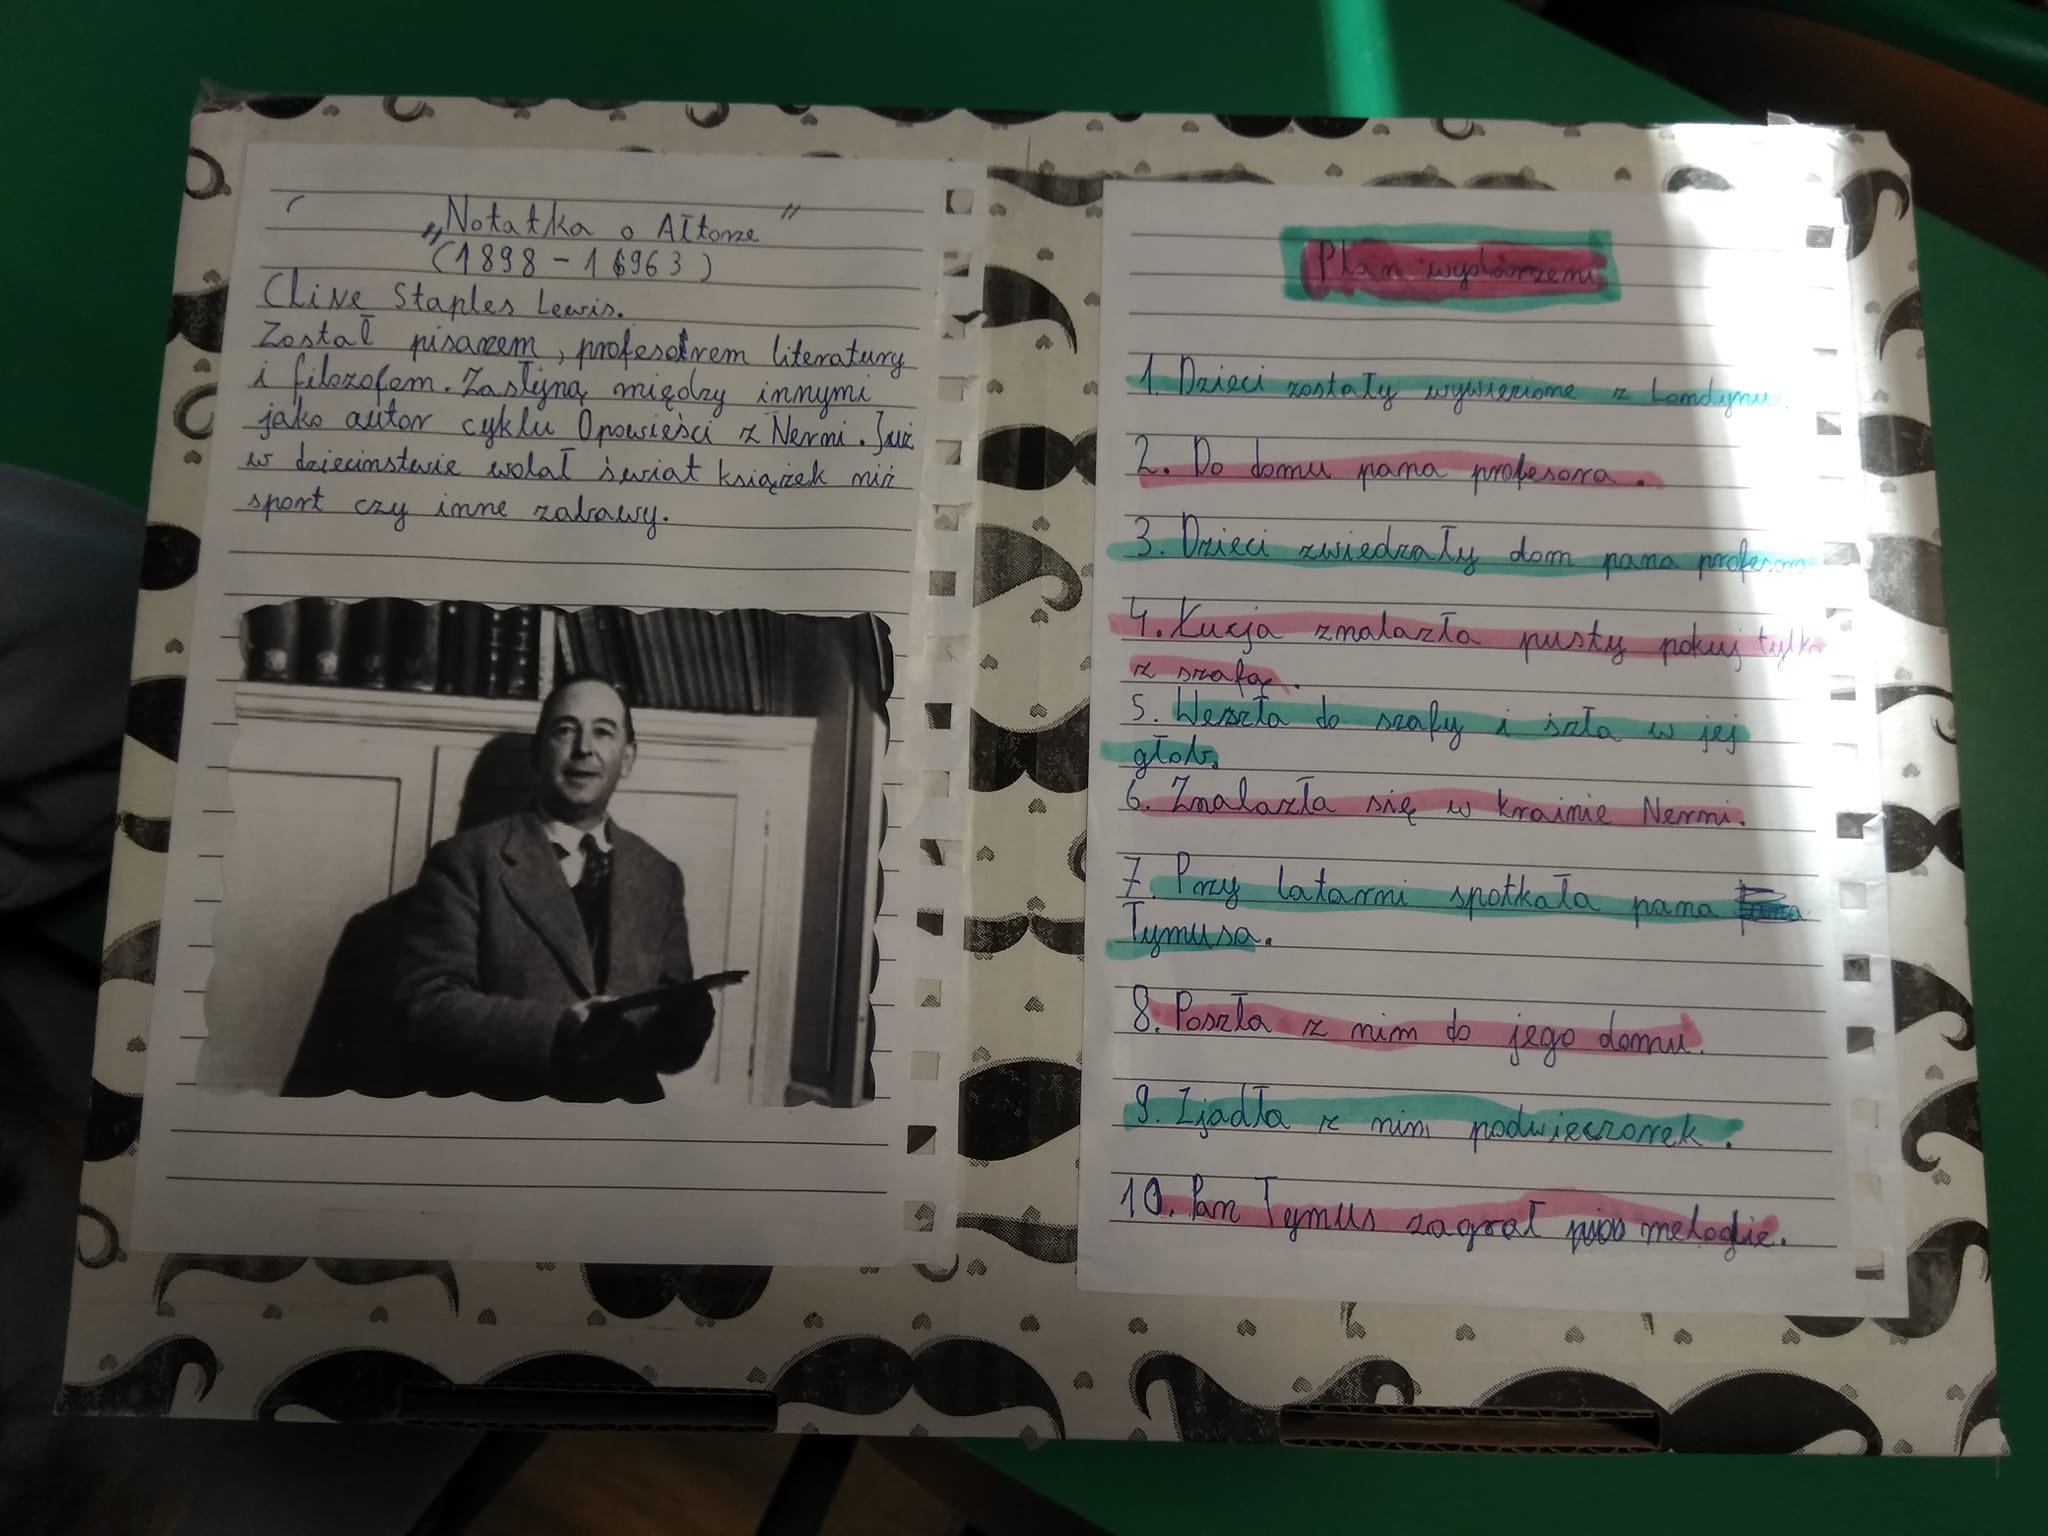 „Notatka o Ałtorze"
(1898 - 1963)
Clive Staples Lewis.
Został pisarzem, profesorem literatury
i filozofem. Zasłyną między innymi
jako autor cyklu Opowieści z Nerni. Już
w dziecinstwie wolał świat książek niż
sport czy inne zabawy.
Plan wydarzeni
1. Dzieci zostały wywiezione z Londynu.
2. Do domu pana profesora.
3. Dzieci zwiedzały dom pana profesora
4. Łucja znalazła pusty pokuj tylko
z szafą.
5. Weszła do szafy i szła w jej
głąb.
6. Znalazła się w krainie Nerni.
7. Przy latarni spotkała pana
Tymusa.
8. Poszła z nim do jego domu.
9. Zjadła z nim podwieczorek.
10. Pan Tymus zagrał melodie.